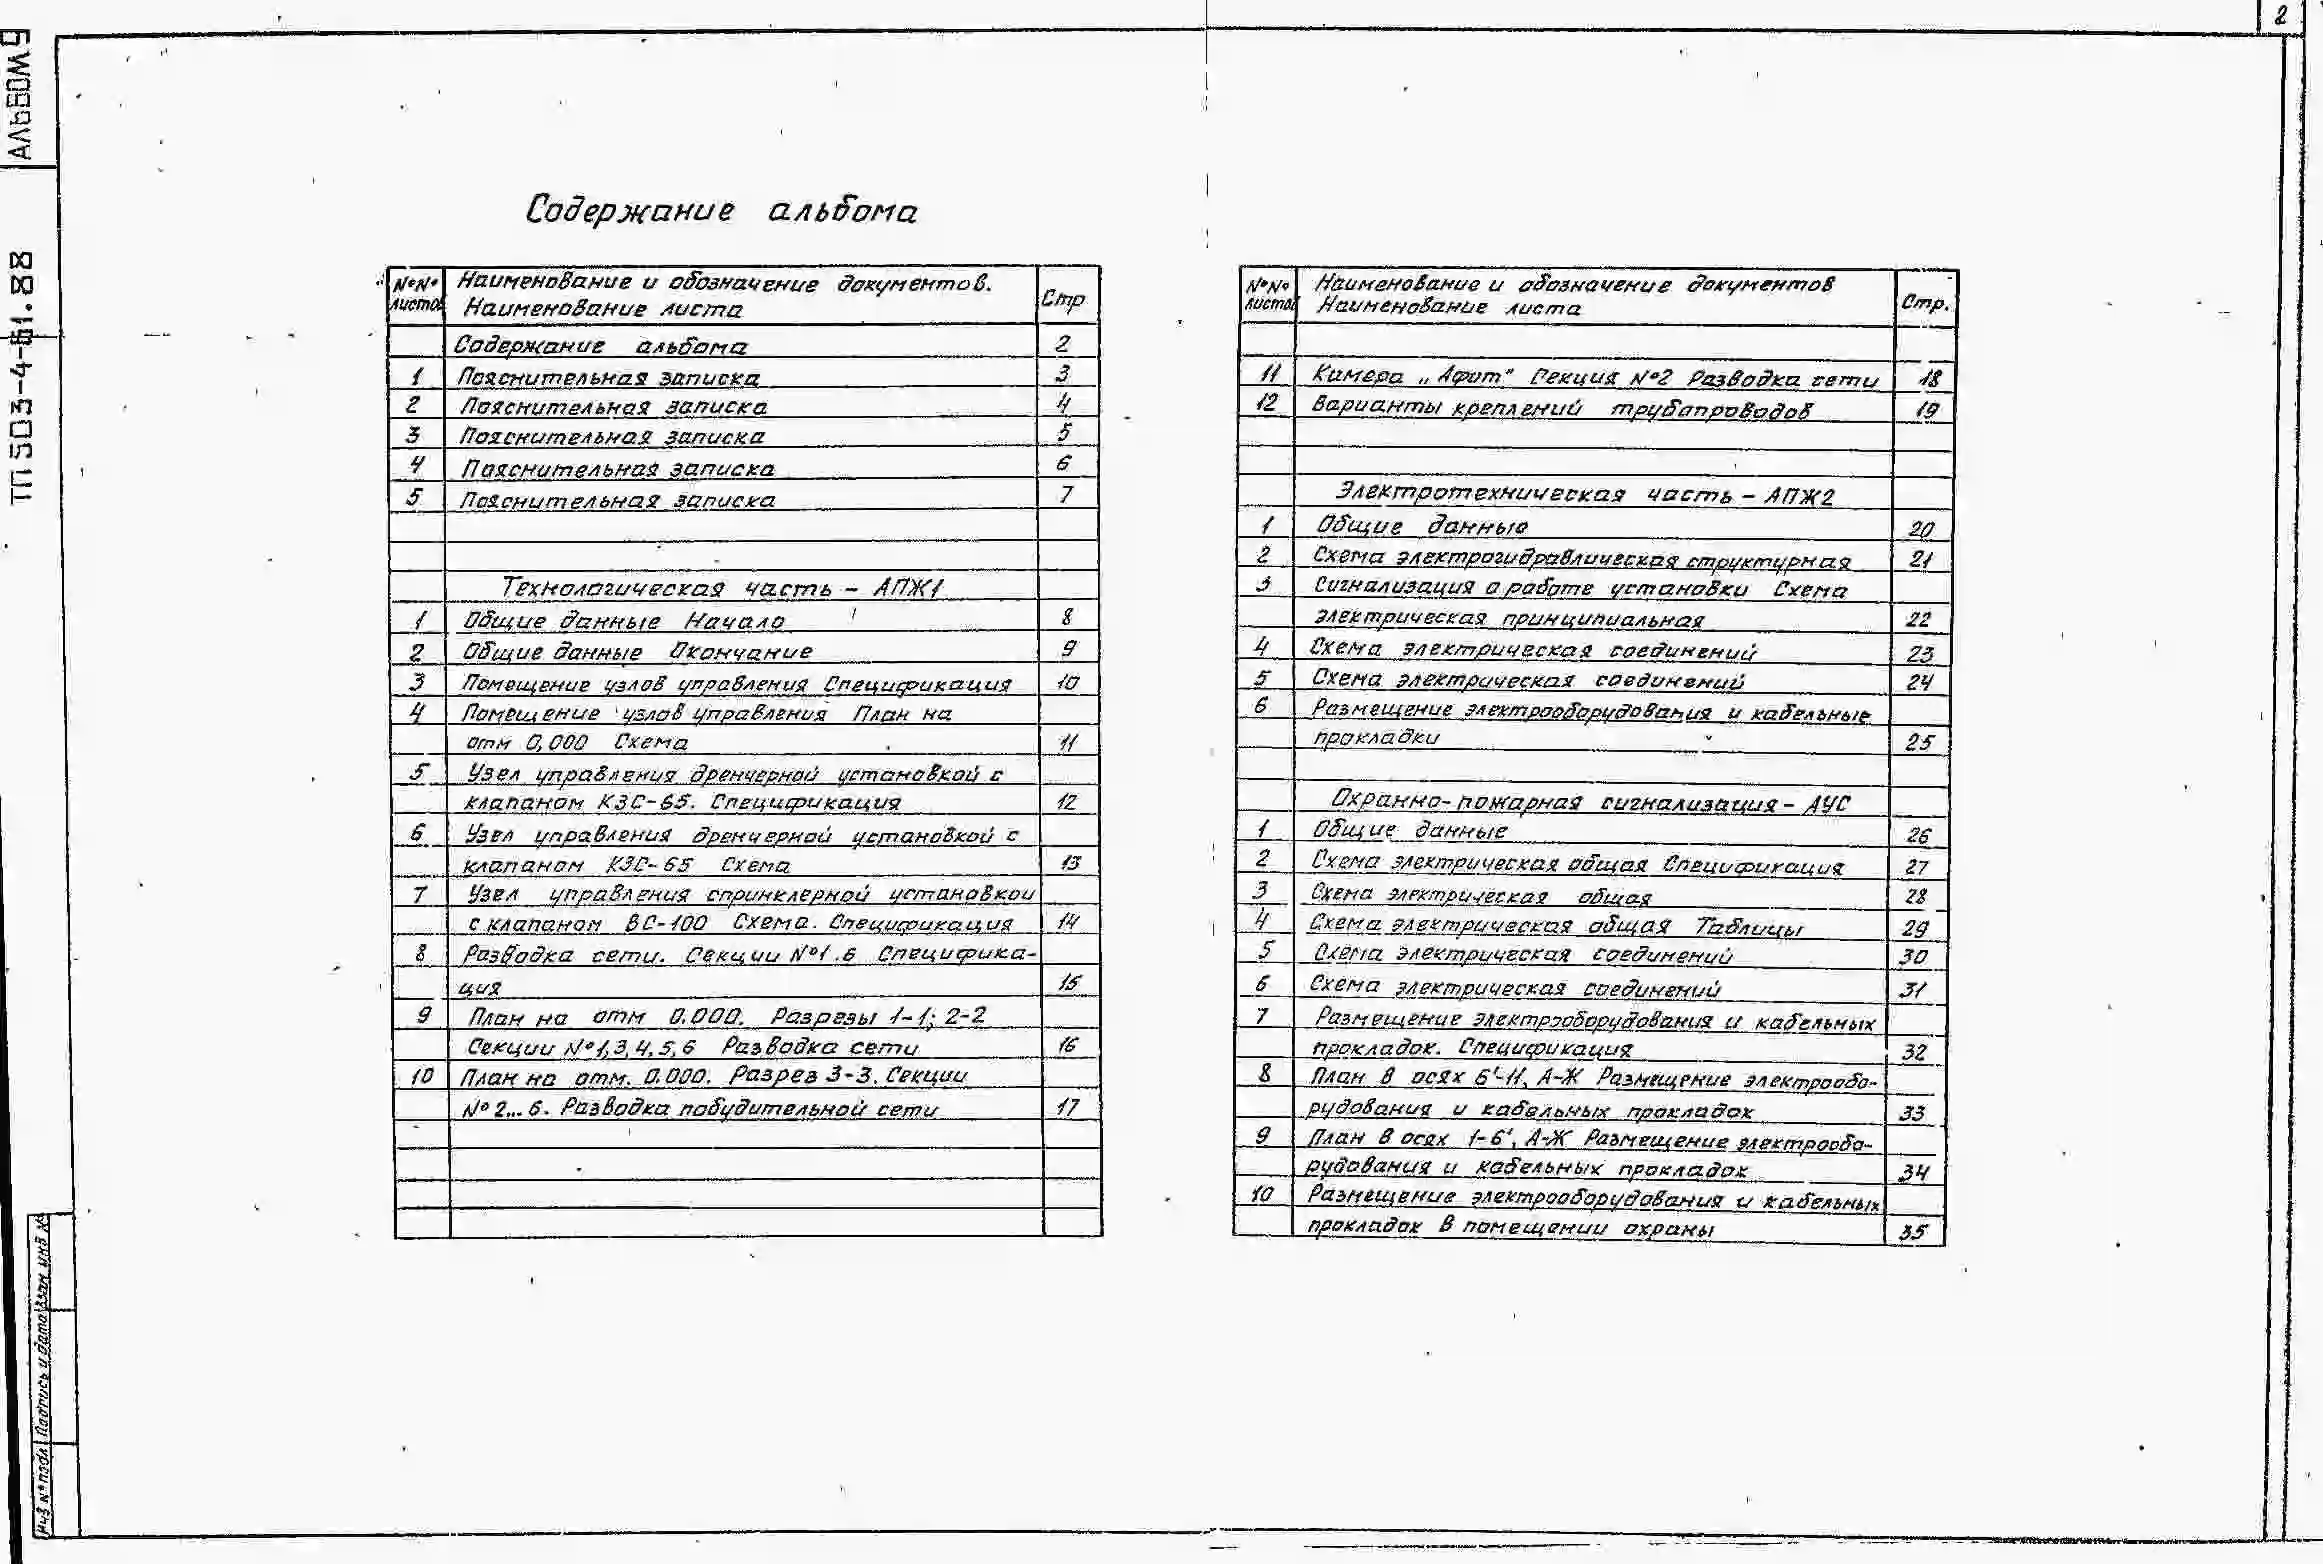 2
АЛЬБОМ 5
ТП 503-4-51.88
Содержание альбома
№№ листов
Наименование и обозначение документов.
Наименование листа
Стр
Содержание альбома 2
1 Пояснительная записка 3
2 Пояснительная записка 4
3 Пояснительная записка 5
4 Пояснительная записка 6
5 Пояснительная записка 7
Технологическая часть - АПЖ1
1 Общие данные Начало 8
2 Общие данные Окончание 9
3 Помещение узлов управления Спецификация 10
4 Помещение узлов управления План на
отм 0,000 Схема 11
5 Узел управления дренчерной установкой с
клапаном КЗС-65. Спецификация 12
6 Узел управления дренчерной установкой с
клапаном КЗС-65 Схема 13
7 Узел управления спринклерной установкой
с клапаном ВС-100 Схема. Спецификация 14
8 Разводка сети. Секции №1.6 Специфика-
ция 15
9 План на отм 0.000. Разрезы 1-1; 2-2
Секции №1,3,4,5,6 Разводка сети 16
10 План на отм. 0.000. Разрез 3-3. Секции
№2...6. Разводка побудительной сети 17
№№ листов
Наименование и обозначение документов
Наименование листа
Стр.
11 Камера „Афит" Секция №2 Разводка сети 18
12 Варианты креплений трубопроводов 19
Электротехническая часть - АПЖ2
1 Общие данные 20
2 Схема электрогидравлическая структурная 21
3 Сигнализация о работе установки Схема
электрическая принципиальная 22
4 Схема электрическая соединений 23
5 Схема электрическая соединений 24
6 Размещение электрооборудования и кабельные
прокладки 25
Охранно-пожарная сигнализация - АУС
1 Общие данные 26
2 Схема электрическая общая Спецификация 27
3 Схема электрическая общая 28
4 Схема электрическая общая Таблицы 29
5 Схема электрическая соединений 30
6 Схема электрическая соединений 31
7 Размещение электрооборудования и кабельных
прокладок. Спецификация 32
8 План в осях 6'-11, А-Ж Размещение электрообо-
рудования и кабельных прокладок 33
9 План в осях 1-6', А-Ж Размещение электрообо-
рудования и кабельных прокладок 34
10 Размещение электрооборудования и кабельных
прокладок в помещении охраны 35
Взам инв №
Подпись и дата
Инв № подл